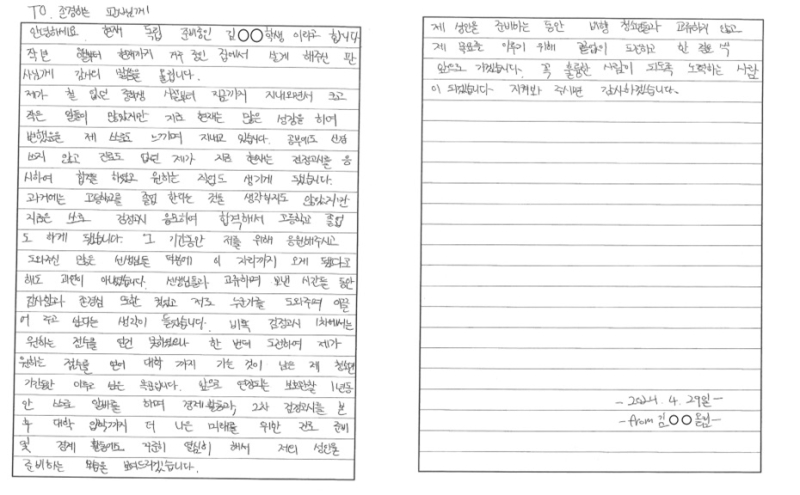 TO. 존경하는 판사님께!
안녕하세요. 현재 독립 준비중인 김○○학생 이라고 합니다
작년 월부터 현재까지 거주 중인 집에서 살게 해주신 판
사님께 감사의 말씀을 올립니다.
제가 철 없던 중학생 시절부터 지금까지 지내오면서 크고
작은 일들이 많았지만 지금 현재는 많은 성장을 하여
변했음을 제 스스로 느끼며 지내고 있습니다. 공부에도 신경
쓰지 않고 진로도 없던 제가 지금 현재는 검정고시를 응
시하여 합격을 하였고 원하는 직업도 생기게 되었습니다.
과거에는 고등학교를 졸업 한다는 것을 생각하지도 않았지만
지금은 스스로 검정고시 응모하여 합격해서 고등학교 졸업
도 하게 되었습니다. 그 기간동안 저를 위해 응원해주시고
도와주신 많은 선생님들 덕분에 이 자리까지 오게 됐다고
해도 과언이 아니었습니다. 선생님들과 교류하며 보낸 시간들 동안
감사함과 존경심 또한 컸었고 저도 누군가를 도와주며 이끌
어 주고 싶다는 생각이 들었습니다. 비록 검정고시 1차에서는
원하는 점수를 얻진 못하였으나 한 번 더 도전하여 제가
원하는 점수를 얻어 대학 까지 가는 것이 남은 제 청소년
기간동안 이루고 싶은 목표입니다. 앞으로 연장되는 보호관찰 1년동
안 스스로 알바를 하며 경제활동과, 2차 검정고시를 본
후 대학 입학까지 더 나은 미래를 위한 진로 준비
및 경제 활동에도 꾸준히 열심히 해서 저의 성인을
준비하는 모습을 보여드리겠습니다.
제 성인을 준비하는 동안 비행 청소년들과 교류하지 않고
제 목표를 이루기 위해 끝없이 도전하고 한 걸음 씩
앞으로 가겠습니다. 꼭 훌륭한 사람이 되도록 노력하는 사람
이 되겠습니다. 지켜봐 주시면 감사하겠습니다.
- 2024. 4. 29일 -
- from 김○○ 올림 -